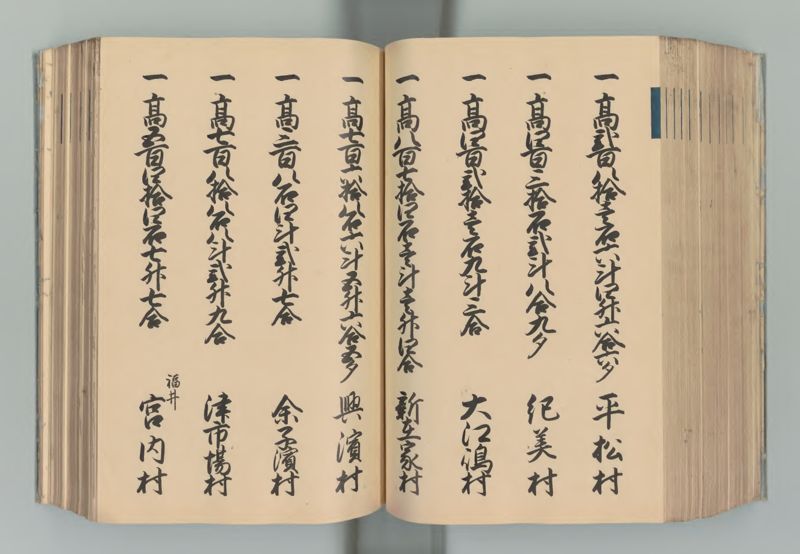 一 高弐百八拾壱石六斗四升六合六夕 平松村
一 高四百三拾石弐斗八合九夕 紀美村
一 高四百弐拾壱石九斗三合 大江嶋村
一 高八百七拾四石壱斗壱升四合 新在家村
一 高七百六拾八石六斗五升六合五夕 興濱村
一 高三百八石四斗弐升七合 余子濱村
一 高七百八拾八石八斗弐升九合 津市場村
一 高五百四拾四石七升七合 福井 宮内村